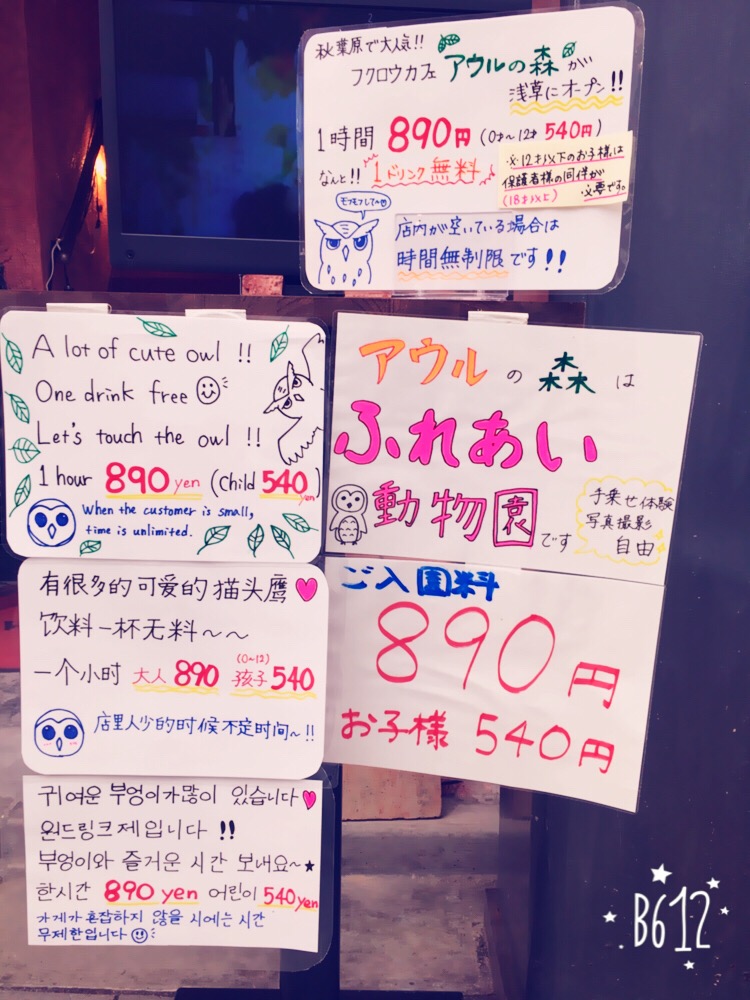 秋葉原で大人気!!
フクロウカフェ アウルの森が
浅草にオープン!!
1時間 890円 (0才〜12才 540円)
なんと!! 1ドリンク無料
※12才以下のお子様は
保護者様の同伴が
(18才以上) 必要です。
モフモフしてへ♡
店内が空いている場合は
時間無制限です!!
A lot of cute owl !!
One drink free
Let's touch the owl !!
1 hour 890 yen (child 540 yen)
When the customer is small,
time is unlimited.
アウルの森は
ふれあい
動物園です
手乗せ体験
写真撮影
自由
ご入園料
890円
お子様 540円
有很多的可爱的猫头鹰♥
饮料一杯无料~~
一个小时 大人 890 (0~12)孩子 540
店里人少的时候不定时间~!!
귀여운 부엉이가많이 있습니다♥
원드링크제입니다 !!
부엉이와 즐거운 시간 보내요~★
한시간 890 yen 어린이 540yen
가게가 혼잡하지 않을 시에는 시간
무제한입니다
B612